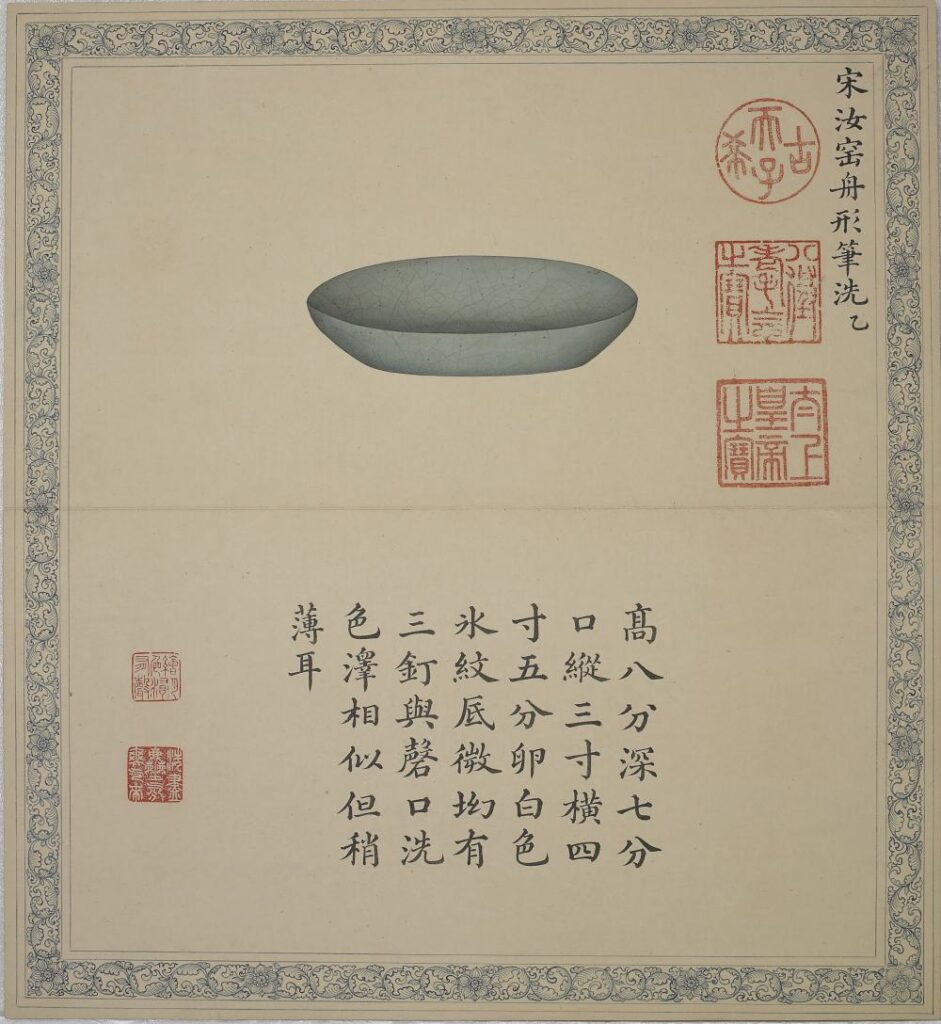 宋汝窑舟形筆洗乙
古希天子
八徵耄念之寶
太上皇帝之寶
髙八分深七分
口縱三寸橫四
寸五分卵白色
氷紋底微坳有
三釘與磬口洗
色澤相似但稍
薄耳